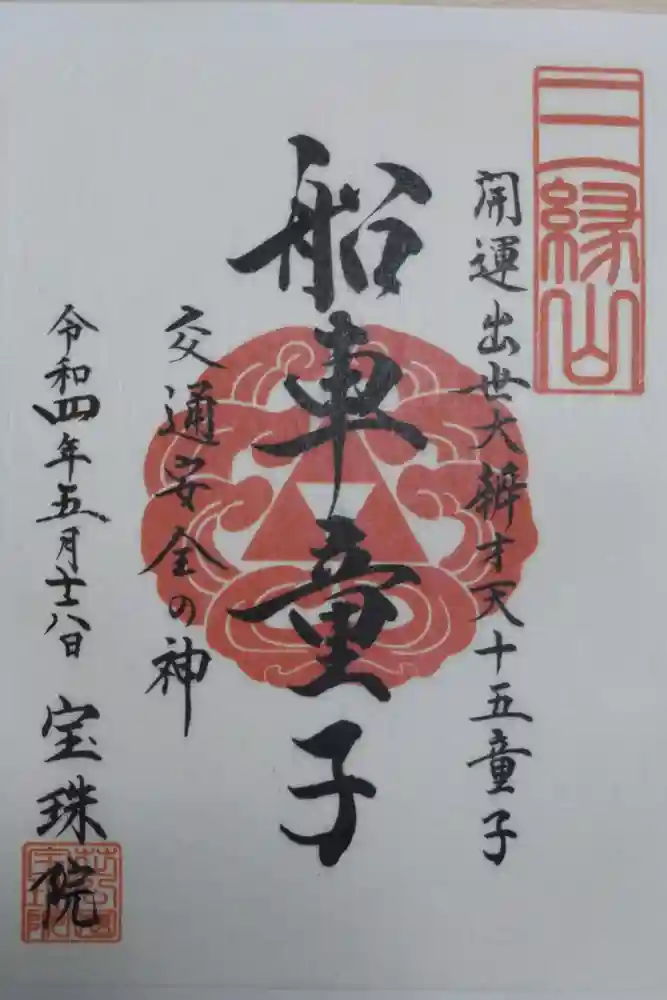 三縁山
開運出世大辨才天十五童子
船車童子
交通安全の神
令和四年五月十八日
宝珠院